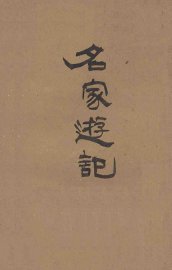 名家遊記